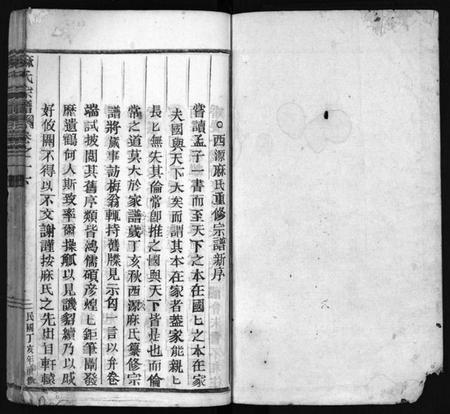 西源麻氏重修宗譜新序
嘗讀孟子一書而至天下之本在國匕之本在家
夫國與天下大矣而謂其本在家者蓋家能親匕
長匕無失其倫常卽推之國與天下皆是也而倫
常之道莫大於家譜歲丁亥秋西源麻氏纂修宗
譜將歲事訪梅翁輒持舊牒見示匄一言以弁卷
端試披閱其舊序類皆鴻儒碩彥煌匕鉅筆闡發
靡遺鶴何人斯敢率爾操觚以見譏貂續乃以戚
好攸關不得以不文謝謹按麻氏之先出自軒轅
麻氏宗譜
民國丁亥